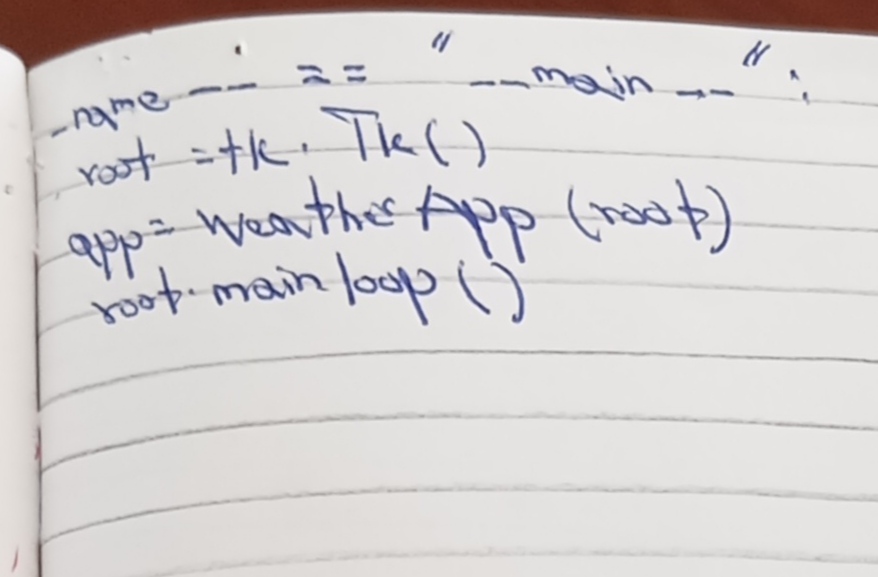 _name__ == "__main__":
root = tk.Tk()
app = WeatherApp (root)
root.mainloop()